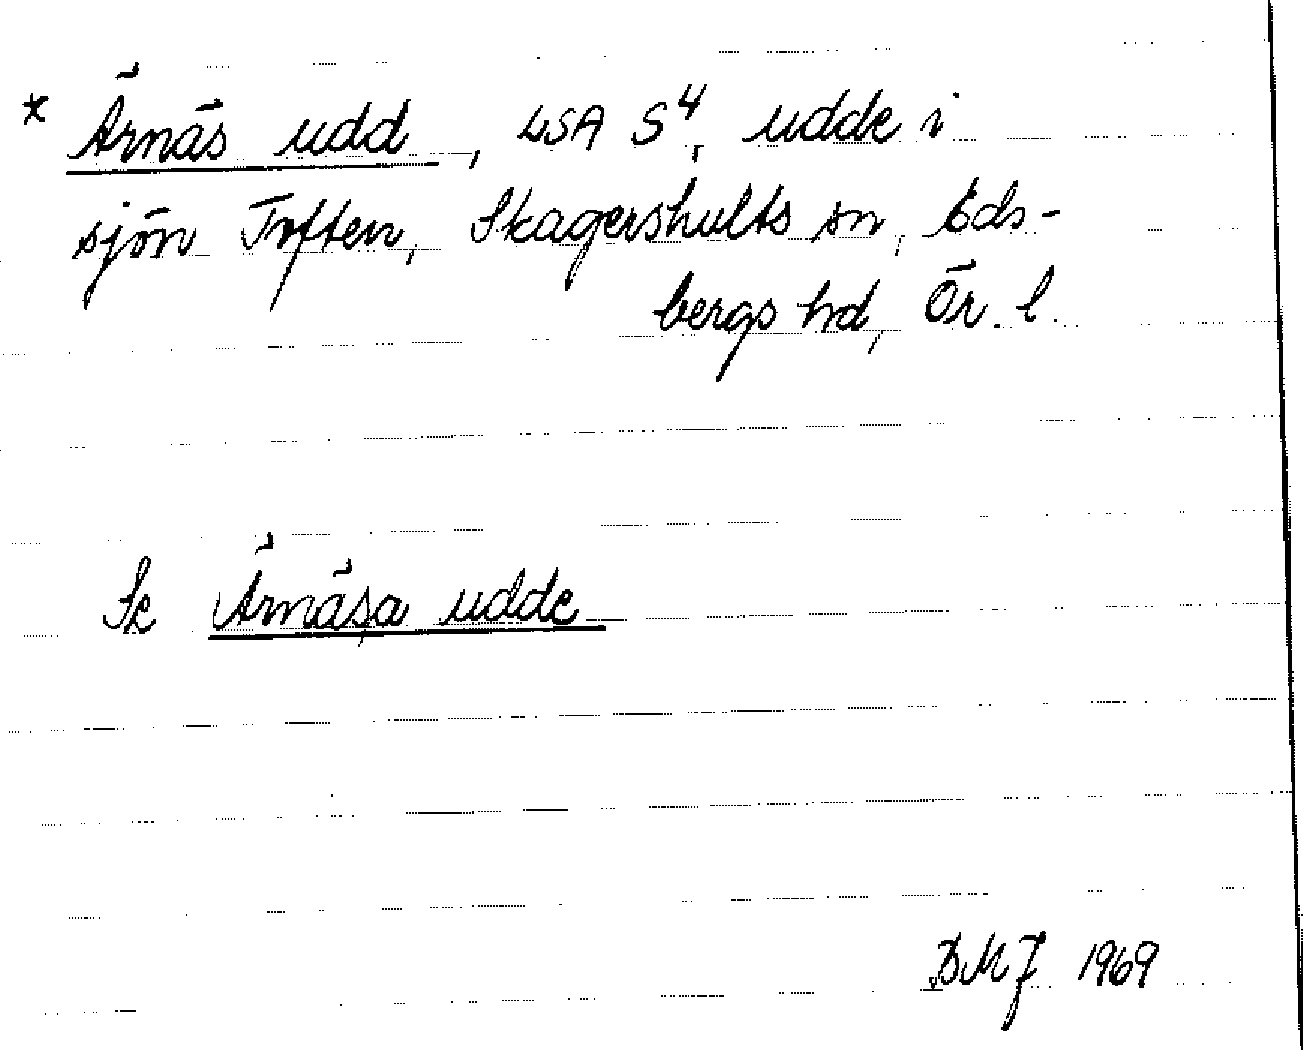 * Ärnäs udd, LSA S4, udde i
sjön Toften, Skagershults sn, Eds-
bergs hd, Ör. l.
Se Ärnäsa udde
BMJ 1969